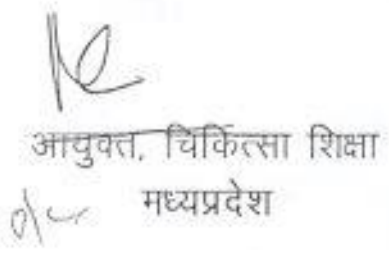 आयुक्त, चिकित्सा शिक्षा
मध्यप्रदेश